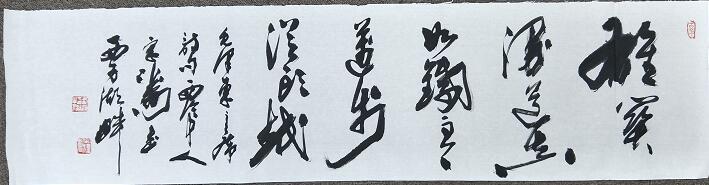 雄關
漫道真
如鐵而今
邁步
從頭越
毛澤東主席
詩句
書
西子湖畔